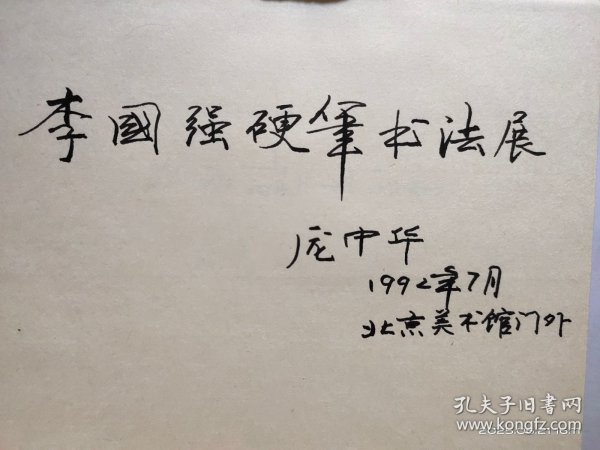 李國强硬筆书法展
庞中华
1992年7月
北京美术馆门外
孔夫子旧书网
www.kongfz.com